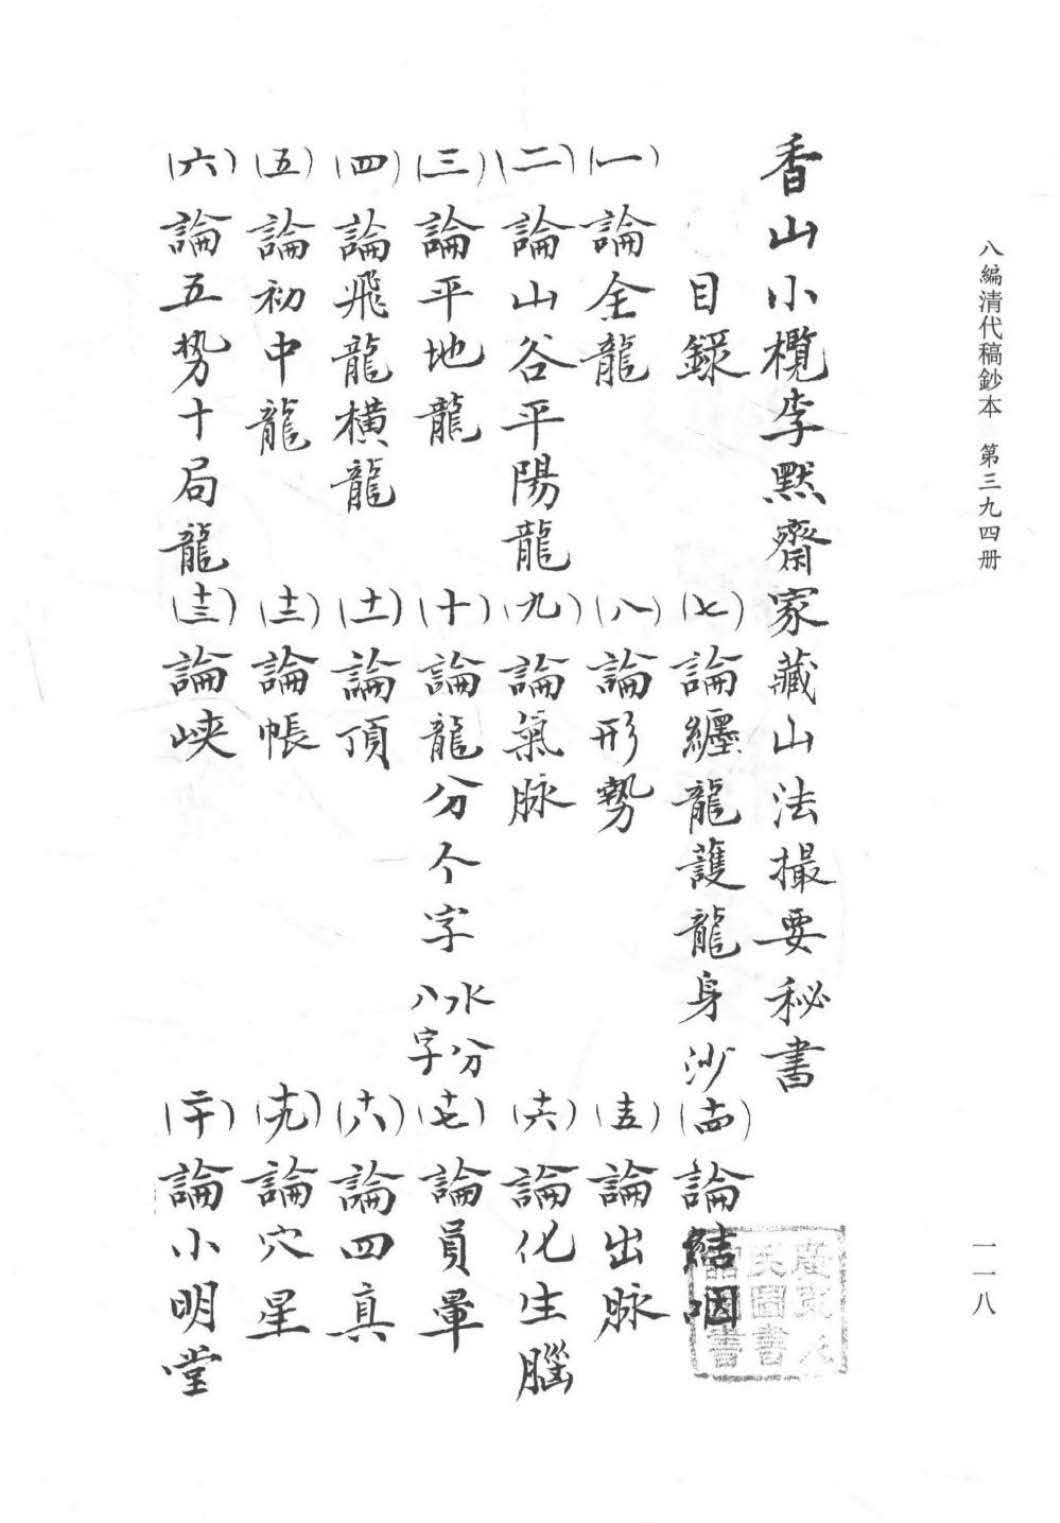 八編清代稿鈔本 第三九四册
香山小欖李默齋家藏山法撮要秘書
目錄
(一)論全龍
(二)論山谷平陽龍
(三)論平地龍
(四)論飛龍橫龍
(五)論初中龍
(六)論五势十局龍
(七)論纏龍護龍身沙
(八)論形勢
(九)論氣脉
(十)論龍分个字 水分八字
(十一)論頂
(十二)論帳
(十三)論峽
(十四)論結咽
(十五)論出脉
(十六)論化生腦
(十七)論員暈
(十八)論四真
(十九)論穴星
(二十)論小明堂
一一八